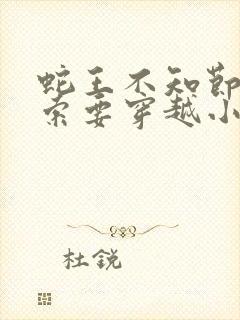 蛇王不知節
索要穿越小
杜锐